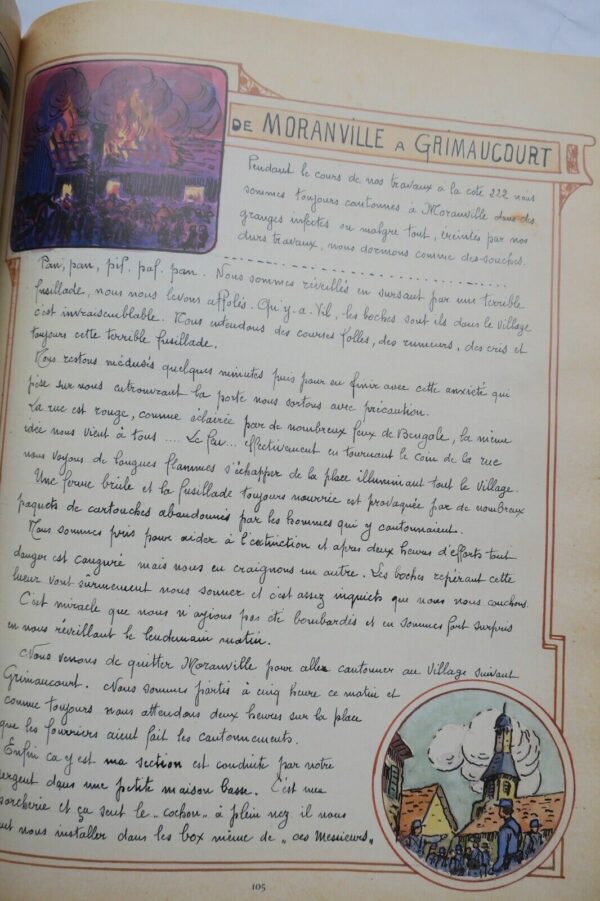 DE MORANVILLE A GRIMAUCOURT
Pendant le cours de nos travaux à la cote 222 nous
sommes toujours cantonnés à Moranville dans des
granges infectes ou malgré tout, éreintés par nos
durs travaux, nous dormons comme des souches.
Pan, pan, pif. paf. pan. Nous sommes réveillés en sursaut par une terrible
fusillade, nous nous levons affolés. Qu'y-a-t-il, les boches sont ils dans le village
c'est invraisemblable. Nous entendons des courses folles, des rumeurs, des cris et
toujours cette terrible fusillade.
Nous restons médusés quelques minutes puis pour en finir avec cette anxiété qui
pèse sur nous entrouvrant la porte nous sortons avec précaution.
La rue est rouge, comme éclairée par de nombreux feux de Bengale, la même
idée nous vient à tous .... Le feu... effectivement en tournant le coin de la rue
nous voyons de longues flammes s'échapper de la place illuminant tout le village.
Une ferme brûle et la fusillade toujours nourrie est provoquée par de nombreux
paquets de cartouches abandonnés par les hommes qui y cantonnaient.
Nous sommes pris pour aider à l'extinction et après deux heures d'efforts tout
danger est conjuré mais nous en craignons un autre. Les boches repérant cette
lueur vont sûrement nous sonner et c'est assez inquiets que nous nous couchons.
C'est miracle que nous n'ayions pas été bombardés et en sommes fort surpris
en nous réveillant le lendemain matin.
Nous venons de quitter Moranville pour aller cantonner au village suivant
Grimaucourt. Nous sommes partis à cinq heure ce matin et
comme toujours nous attendons deux heures sur la place
que les fourriers aient fait les cantonnements.
Enfin ca y est ma section est conduite par notre
sergent dans une petite maison basse. C'est une
porcherie et ça sent le "cochon" à plein nez il nous
faut nous installer dans les box même de "ces Messieurs"
105